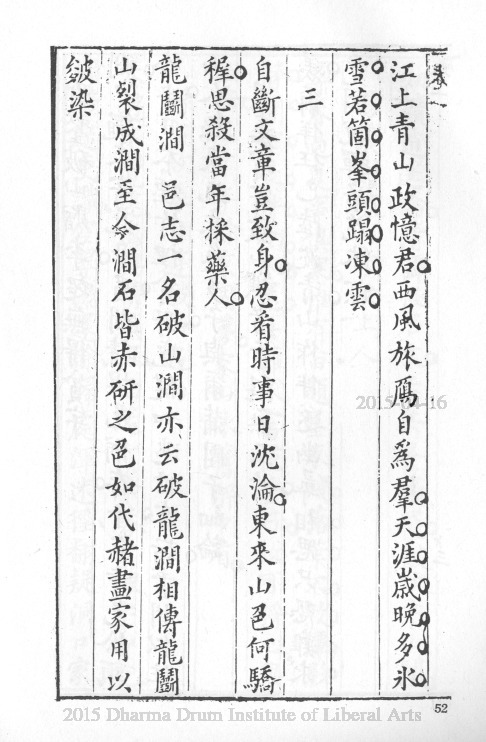 卷一
江上青山政憶君西風旅鴈自爲羣天涯歲晚多氷
雪若箇峯頭蹋凍雲
三
自斷文章豈致身忍看時事日沈淪東來山色何驕
穉思殺當年採藥人
龍鬭澗 邑志一名破山澗亦云破龍澗相傳龍鬭
山裂成澗至今澗石皆赤研之色如代赭畫家用以
皴染
52
2015-04-16
2015 Dharma Drum Institute of Liberal Arts